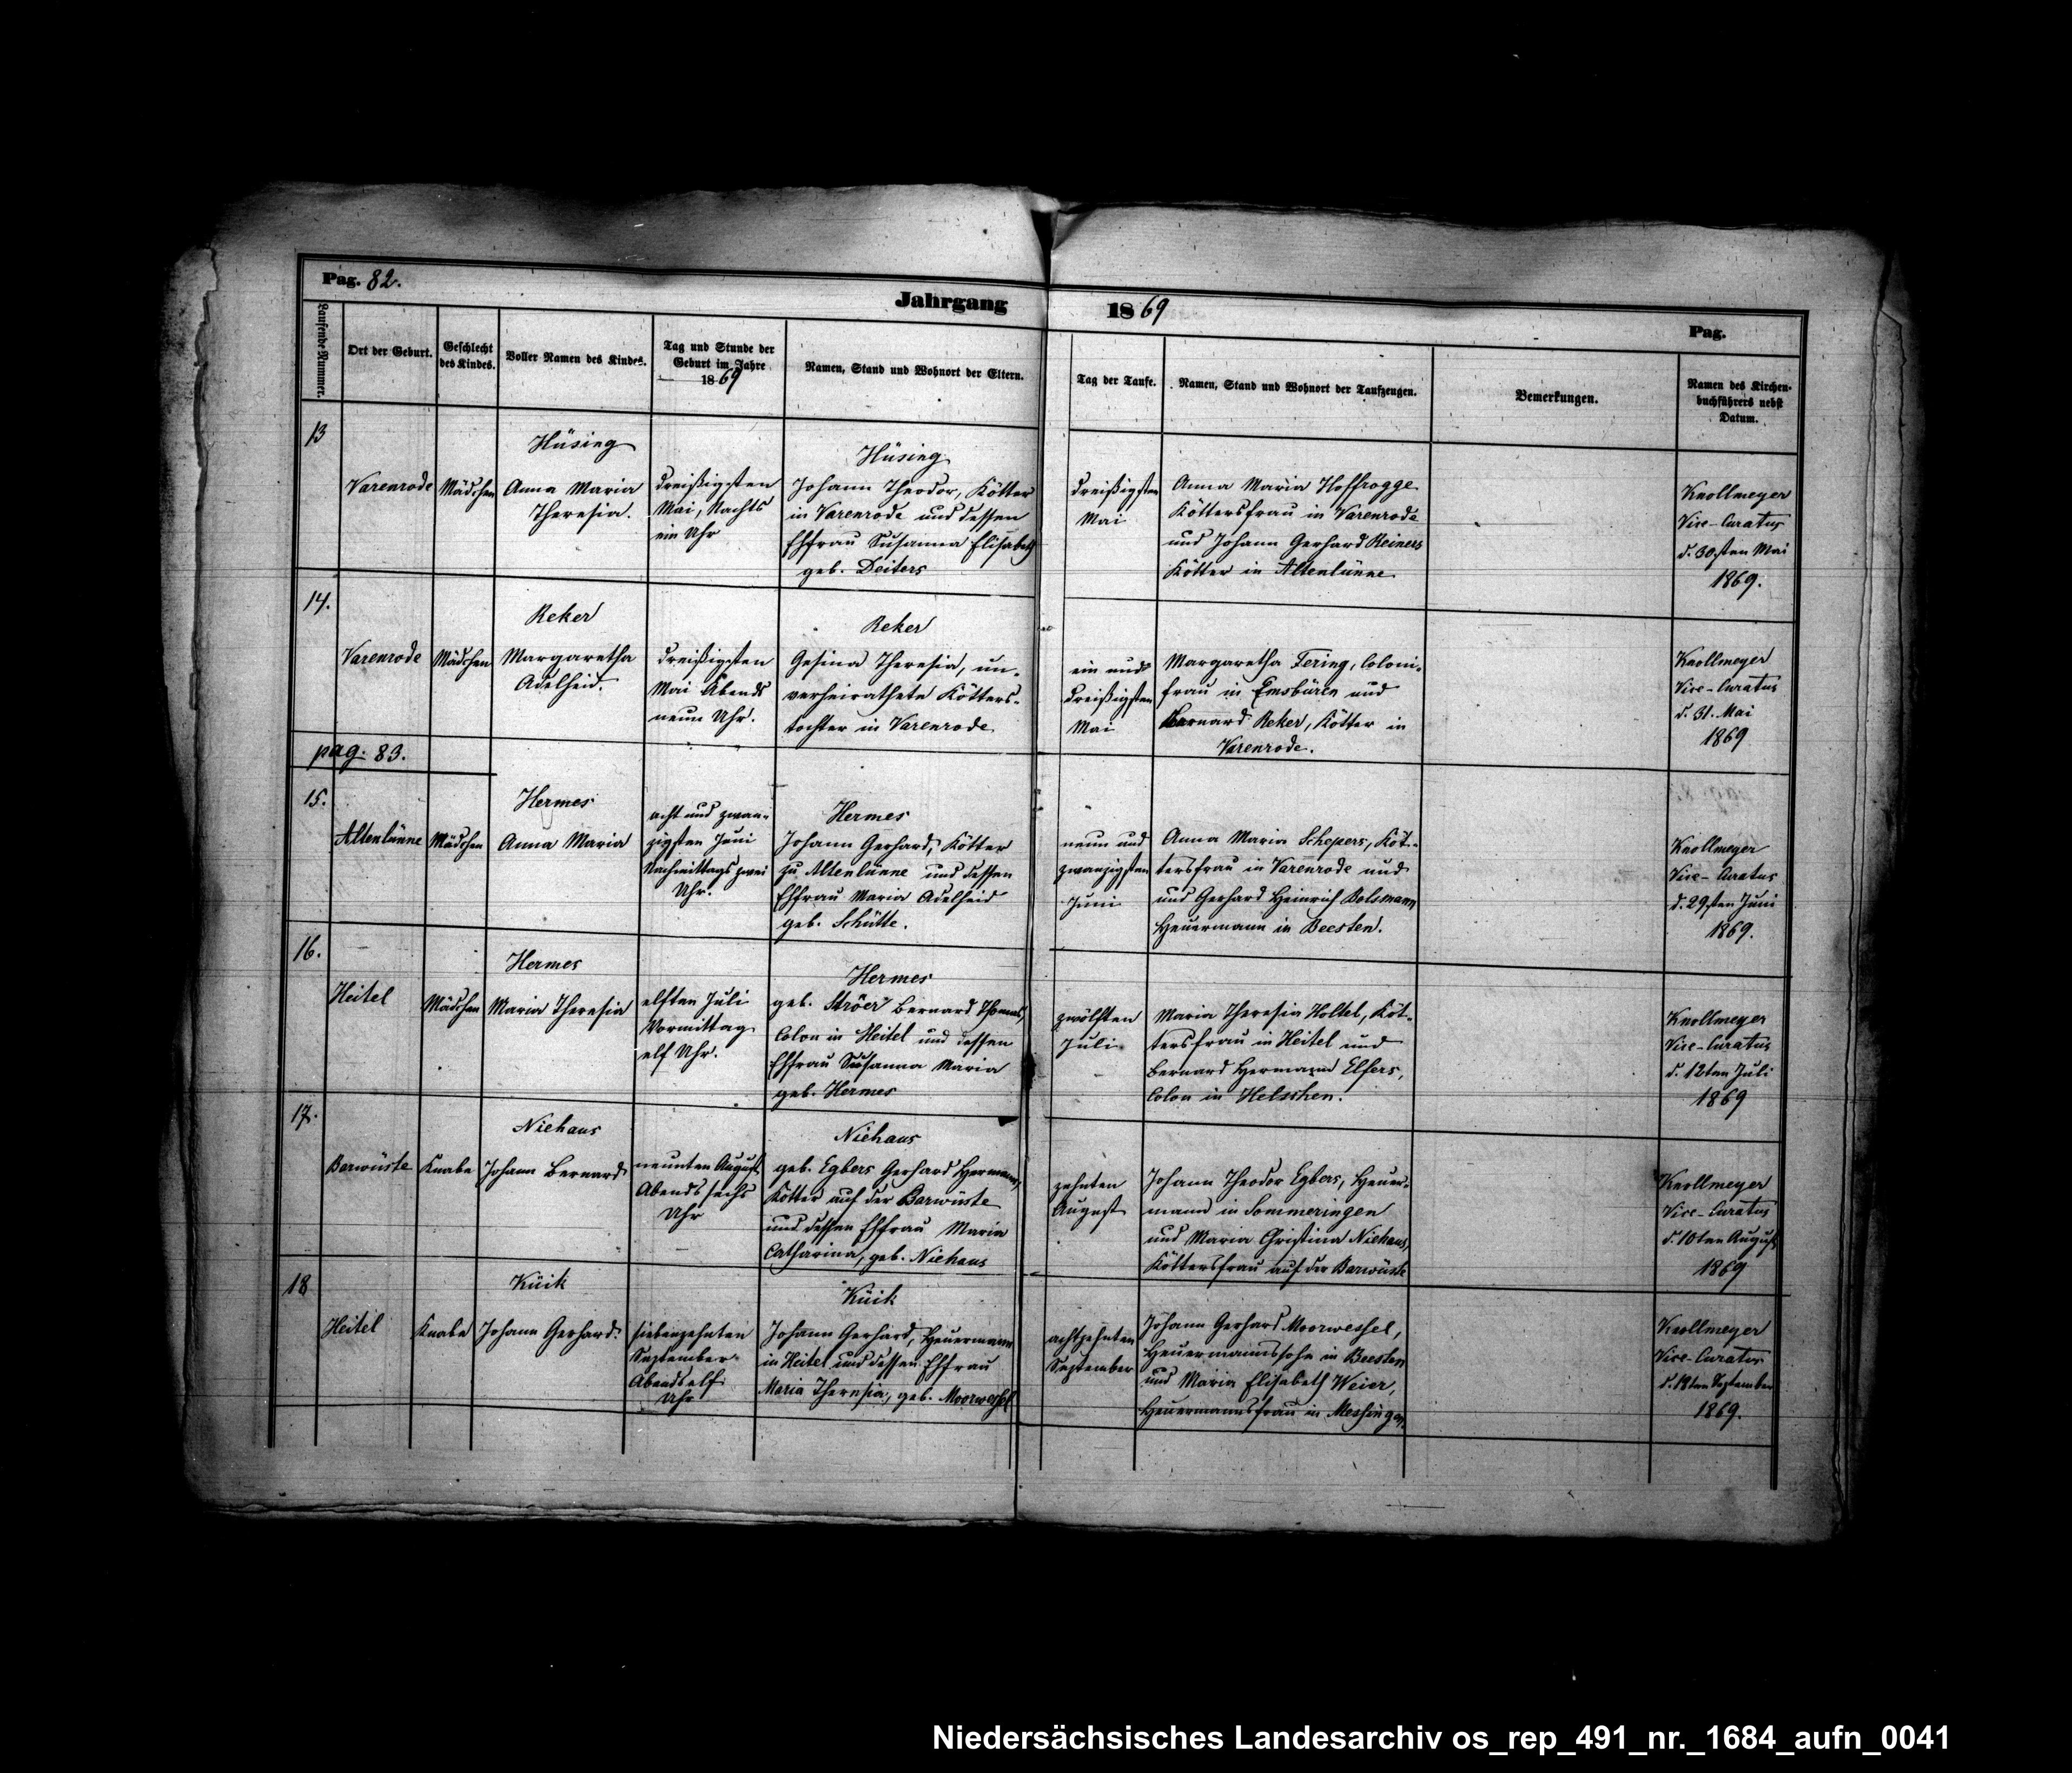 Pag. 82.
Jahrgang 1869
Pag.
Laufende Nummer.
Ort der Geburt.
Geschlecht
des Kindes.
Voller Namen des Kindes.
Tag und Stunde der
Geburt im Jahre
1869
Namen, Stand und Wohnort der Eltern.
Tag der Taufe.
Namen, Stand und Wohnort der Taufzeugen.
Bemerkungen.
Namen des Kirchen-
buchführers nebst
Datum.
13
Varenrode
Mädchen
Hüsing
Anna Maria
Theresia.
dreißigsten
Mai, Nachts
ein Uhr
Hüsing
Johann Theodor, Kötter
in Varenrode und dessen
Ehfrau Susanna Elisabeth
geb. Deiters
dreißigsten
Mai
Anna Maria Hoffrogge
Köttersfrau in Varenrode
und Johann Gerhard Reiners
Kötter in Altenlünne
Knollmeyer
Vice-Curatus
d. 30sten Mai
1869.
14.
Varenrode
Mädchen
Reker
Margaretha
Adelheid.
dreißigsten
Mai Abends
neun Uhr.
Reker
Gesina Theresia, un-
verheirathete Kötters-
tochter in Varenrode
ein und
dreißigsten
Mai
Margaretha Fering, Coloni-
frau in Emsbüren und
Bernard Reker, Kötter in
Varenrode.
Knollmeyer
Vice-Curatus
d. 31. Mai
1869
pag. 83.
15.
Altenlünne
Mädchen
Hermes
Anna Maria
acht und zwan-
zigsten Juni
Nachmittags zwei
Uhr.
Hermes
Johann Gerhard, Kötter
zu Altenlünne und dessen
Ehfrau Maria Adelheid
geb. Schütte.
neun und
zwanzigsten
Juni
Anna Maria Schepers, Köt-
tersfrau in Varenrode und
und Gerhard Heinrich Bolsmann
Heuermann in Beesten.
Knollmeyer
Vice-Curatus
d. 29sten Juni
1869.
16.
Heitel
Mädchen
Hermes
Maria Theresia
elften Juli
Vormittag
elf Uhr.
Hermes
geb. Ströer Bernard Thomas,
Colon in Heitel und dessen
Ehfrau Susanna Maria
geb. Hermes
zwölften
Juli
Maria Theresia Holtel, Köt-
tersfrau in Heitel und
Bernard Hermann Elfers,
Colon in Helschen.
Knollmeyer
Vice-Curatus
d. 12ten Juli
1869
17.
Barwüste
Knabe
Niehaus
Johann Bernard
neunten August
Abends sechs
Uhr
Niehaus
geb. Egbers Gerhard Hermann,
Kötter auf der Barwüste
und dessen Ehfrau Maria
Catharina, geb. Niehaus
zehnten
August
Johann Theodor Egbers, Heuer-
mann in Sommeringen
und Maria Christina Niehaus,
Köttersfrau auf der Barwüste
Knollmeyer
Vice-Curatus
d. 10ten August
1869
18
Heitel
Knabe
Küik
Johann Gerhard.
siebenzehnten
September
Abends elf
Uhr
Küik
Johann Gerhard, Heuermann
in Heitel und dessen Ehfrau
Maria Theresia, geb. Moorwessel
achtzehnten
September
Johann Gerhard Moorwessel,
Heuermannssohn in Beesten
und Maria Elisabeth Weier,
Heuermannsfrau in Messingen.
Knollmeyer
Vice-Curatus
d. 18ten September
1869.
Niedersächsisches Landesarchiv os_rep_491_nr._1684_aufn_0041